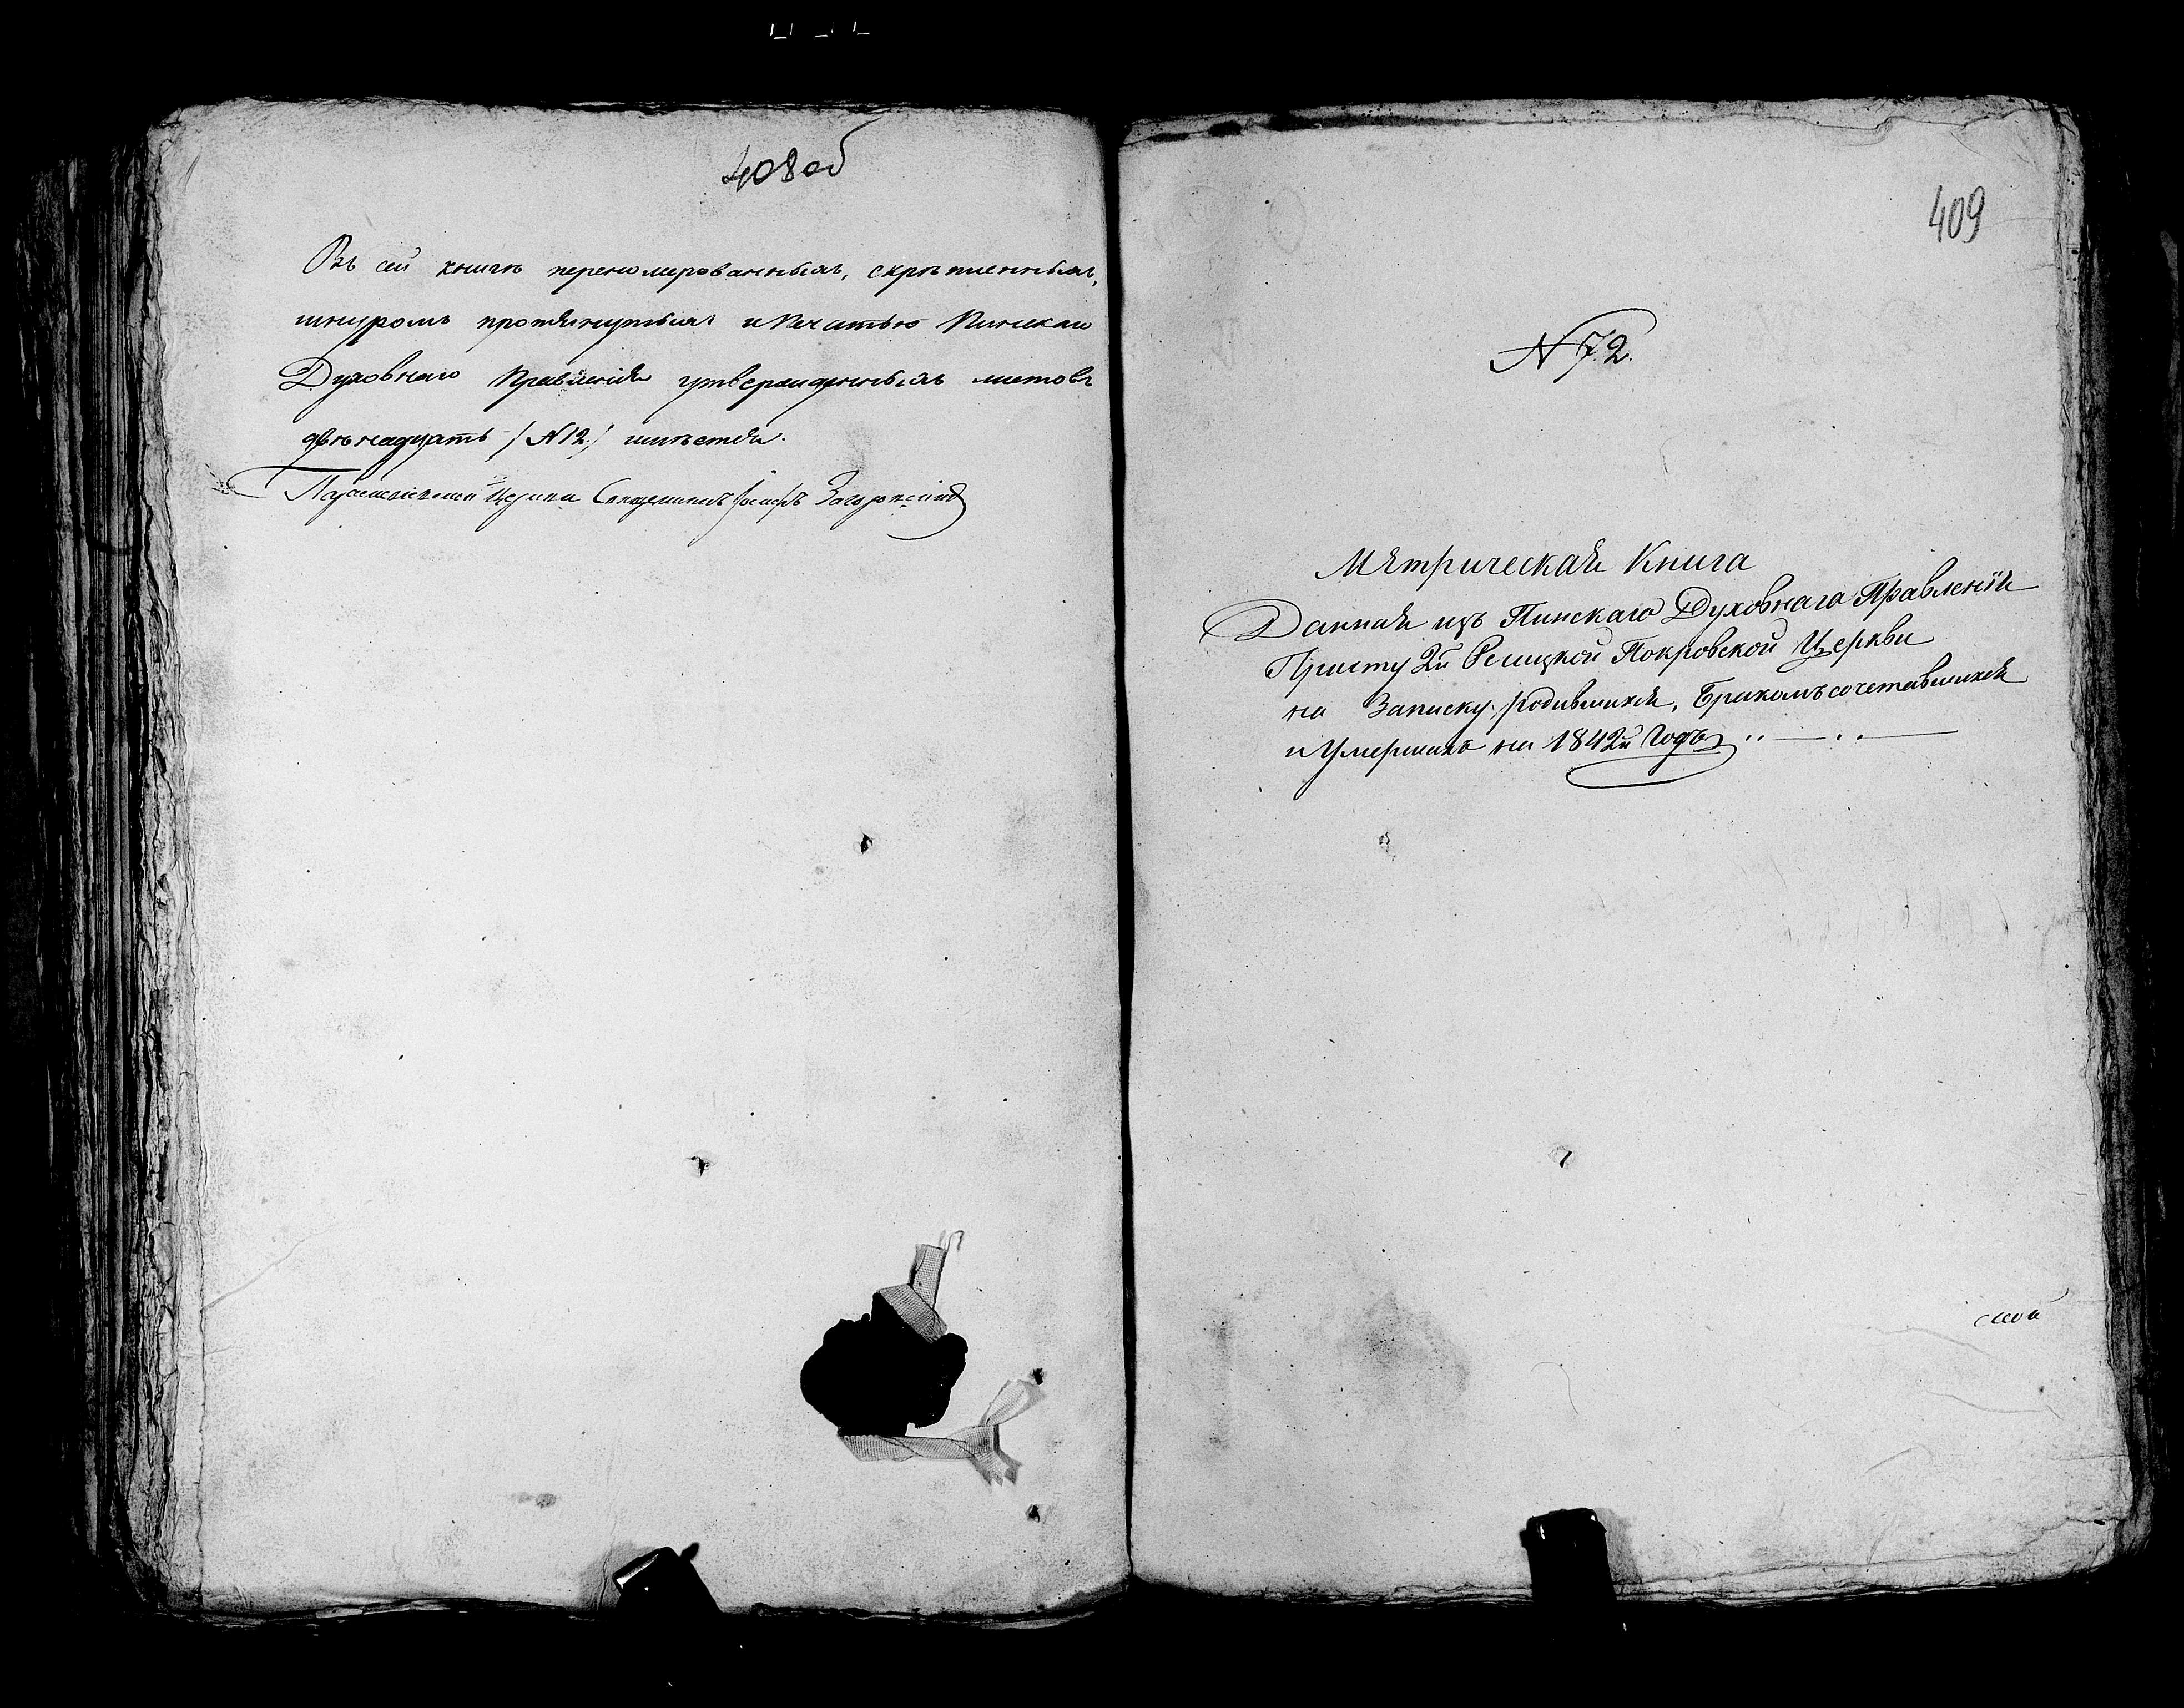 408 об
Въ сей книгѣ переномерованныхъ, скрѣпленныхъ,
шнуромъ протянутыхъ и печатью Пинскаго
Духовнаго Правленія утвержденныхъ листовъ
двѣнадцать /N 12/ имѣется.
Церкви Священникъ Іосифъ
409
N 72.
Метрическая Книга
Данная изъ Пинскаго Духовнаго Правленія
Причту 2й Покровской Церкви
на Записку родившихся, бракомъ сочетавшихся
и Умершихъ на 1842й Годъ